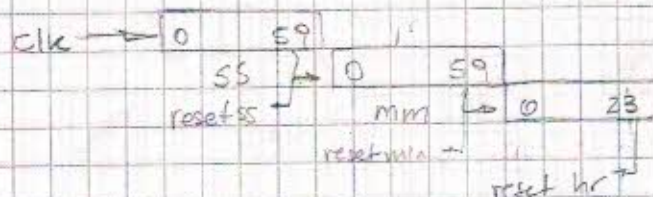 clk 0 59
ss 0 59
reset ss mm 0 23
reset min
reset hr